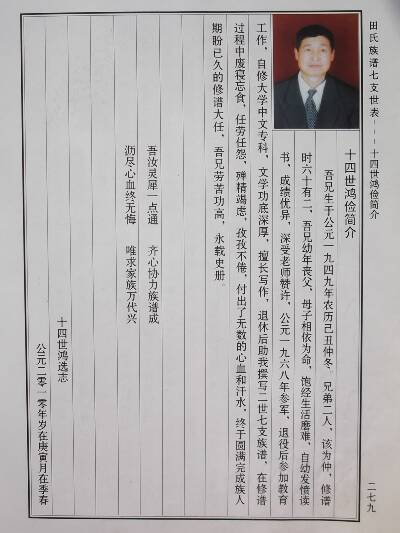 田氏族谱七支世表---十四世鸿俭简介
二七九
十四世鸿俭简介
吾兄生于公元一九四九年农历己丑仲冬，兄弟二人，该为仲，修谱
时六十有二、吾兄幼年丧父，母子相依为命，饱经生活磨难，自幼发愤读
书、成绩优异，深受老师赞许，公元一九六八年参军，退役后参加教育
工作，自修大学中文专科，文学功底深厚，擅长写作，退休后助我撰写二世七支族谱，在修谱
过程中废寝忘食，任劳任怨，殚精竭虑，孜孜不倦，付出了无数的心血和汗水，终于圆满完成族人
期盼已久的修谱大任，吾兄劳苦功高，永载史册
吾汝灵犀一点通 齐心协力族谱成
沥尽心血终无悔 唯求家族万代兴
十四世鸿选志
公元二零一零年岁在庚寅月在季春